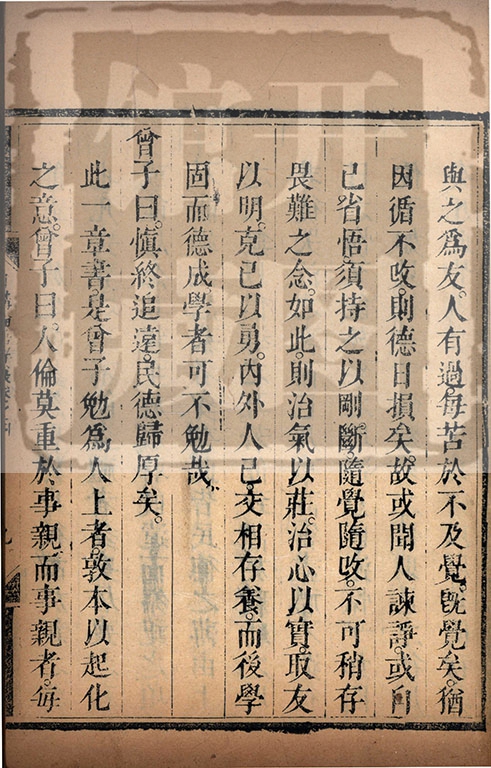 與之爲友。人有過。每苦於不及覺。旣覺矣。猶
因循不改。則德日損矣。故或聞人諫諍。或自
己省悟。須持之以剛斷。隨覺隨改。不可稍存
畏難之念。如此。則治氣以莊。治心以實。取友
以明。克己以勇。內外人己。交相存養。而後學
固而德成。學者可不勉哉。
曾子曰。愼終追遠。民德歸厚矣。
此一章書。是曾子勉爲人上者。敦本以起化
之意。曾子曰。人倫莫重於事親。而事親者。每